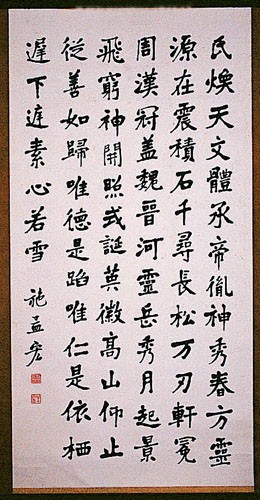 氏煥天文體承帝胤神秀春方靈
源在震積石千尋長松万刃軒冕
周漢冠盖魏晉河靈岳秀月起景
飛窮神開照式誕英徽髙山仰止
從善如歸唯德是蹈唯仁是依栖
遲下迋素心若雪
施孟宏